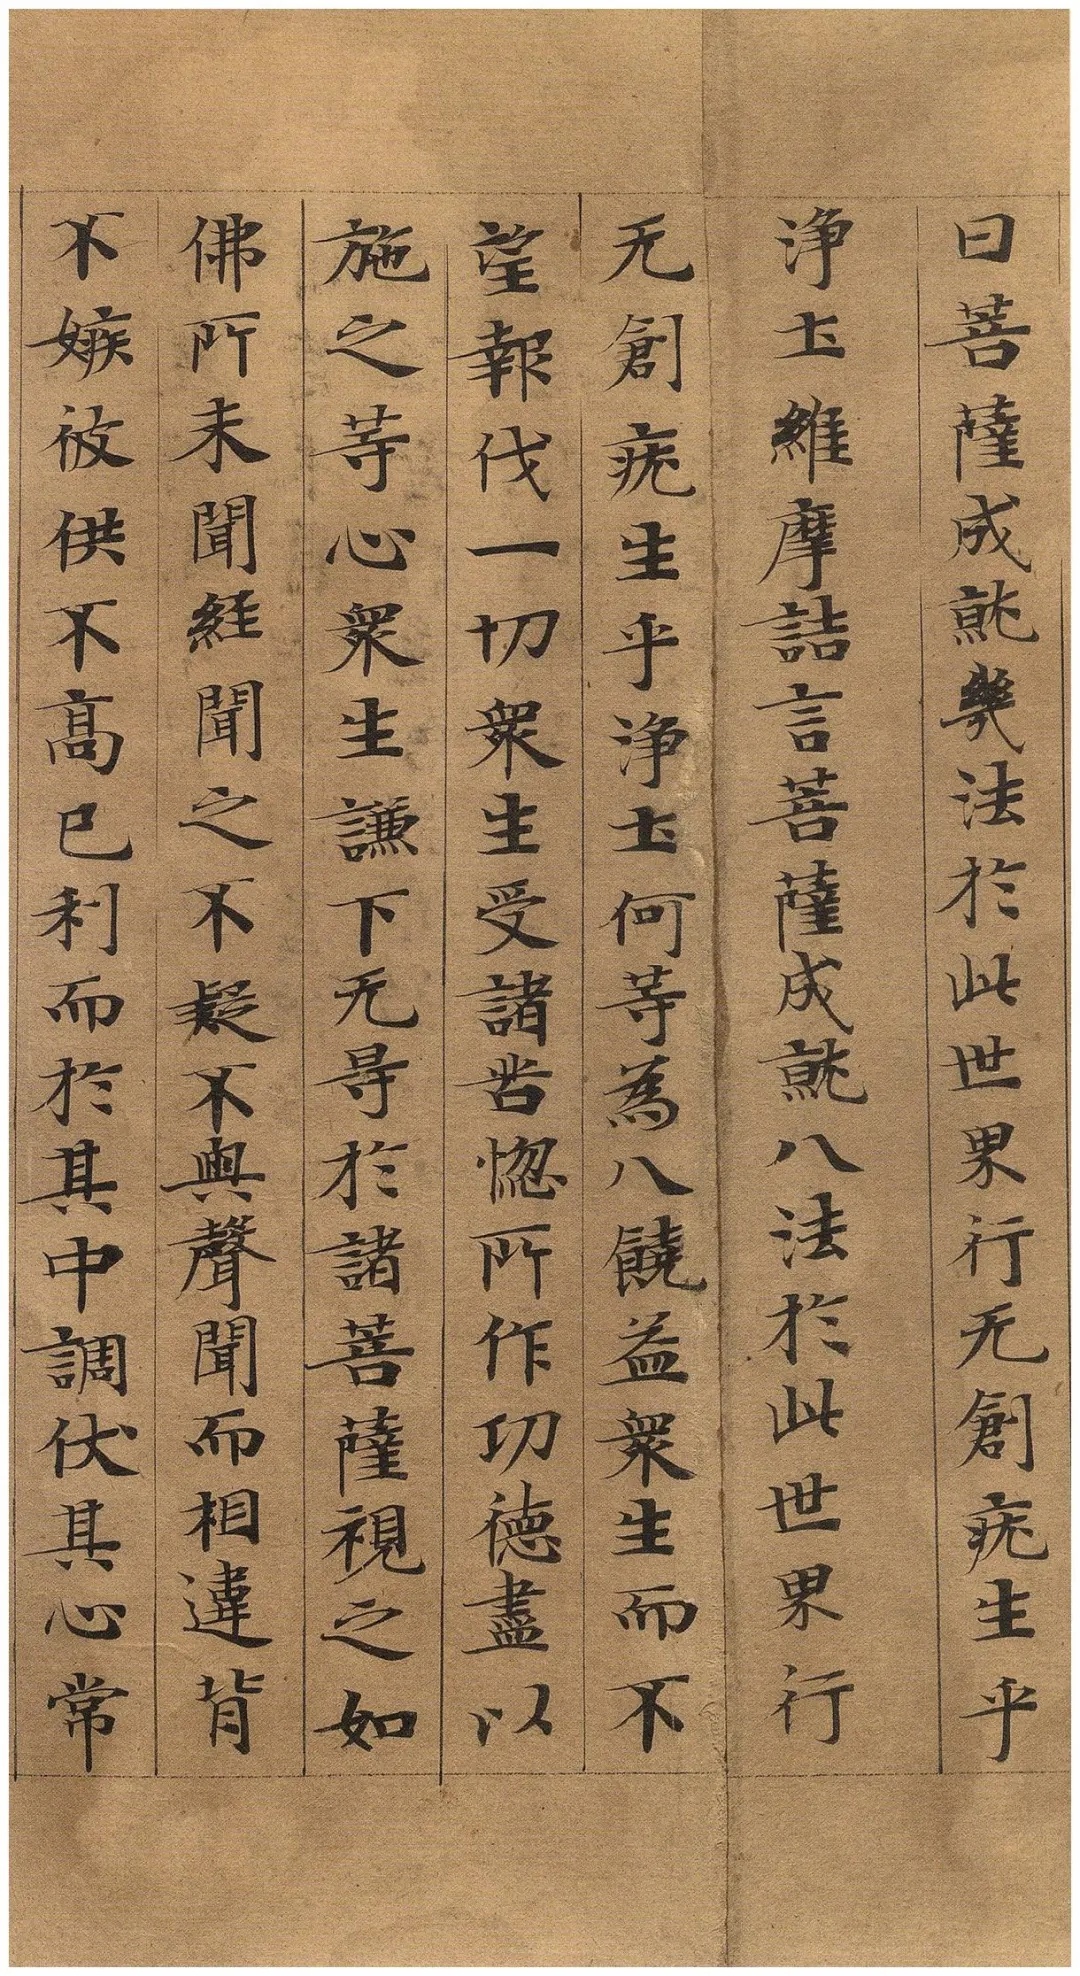 曰菩薩成就幾法於此世界行无創疣生乎
浄土維摩詰言菩薩成就八法於此世界行
无創疣生乎浄土何等為八饒益衆生而不
望報代一切衆生受諸苦惚所作功德盡以
施之等心衆生謙下无㝵於諸菩薩視之如
佛所未聞經聞之不疑不與聲聞而相違背
不嫉彼供不髙己利而於其中調伏其心常